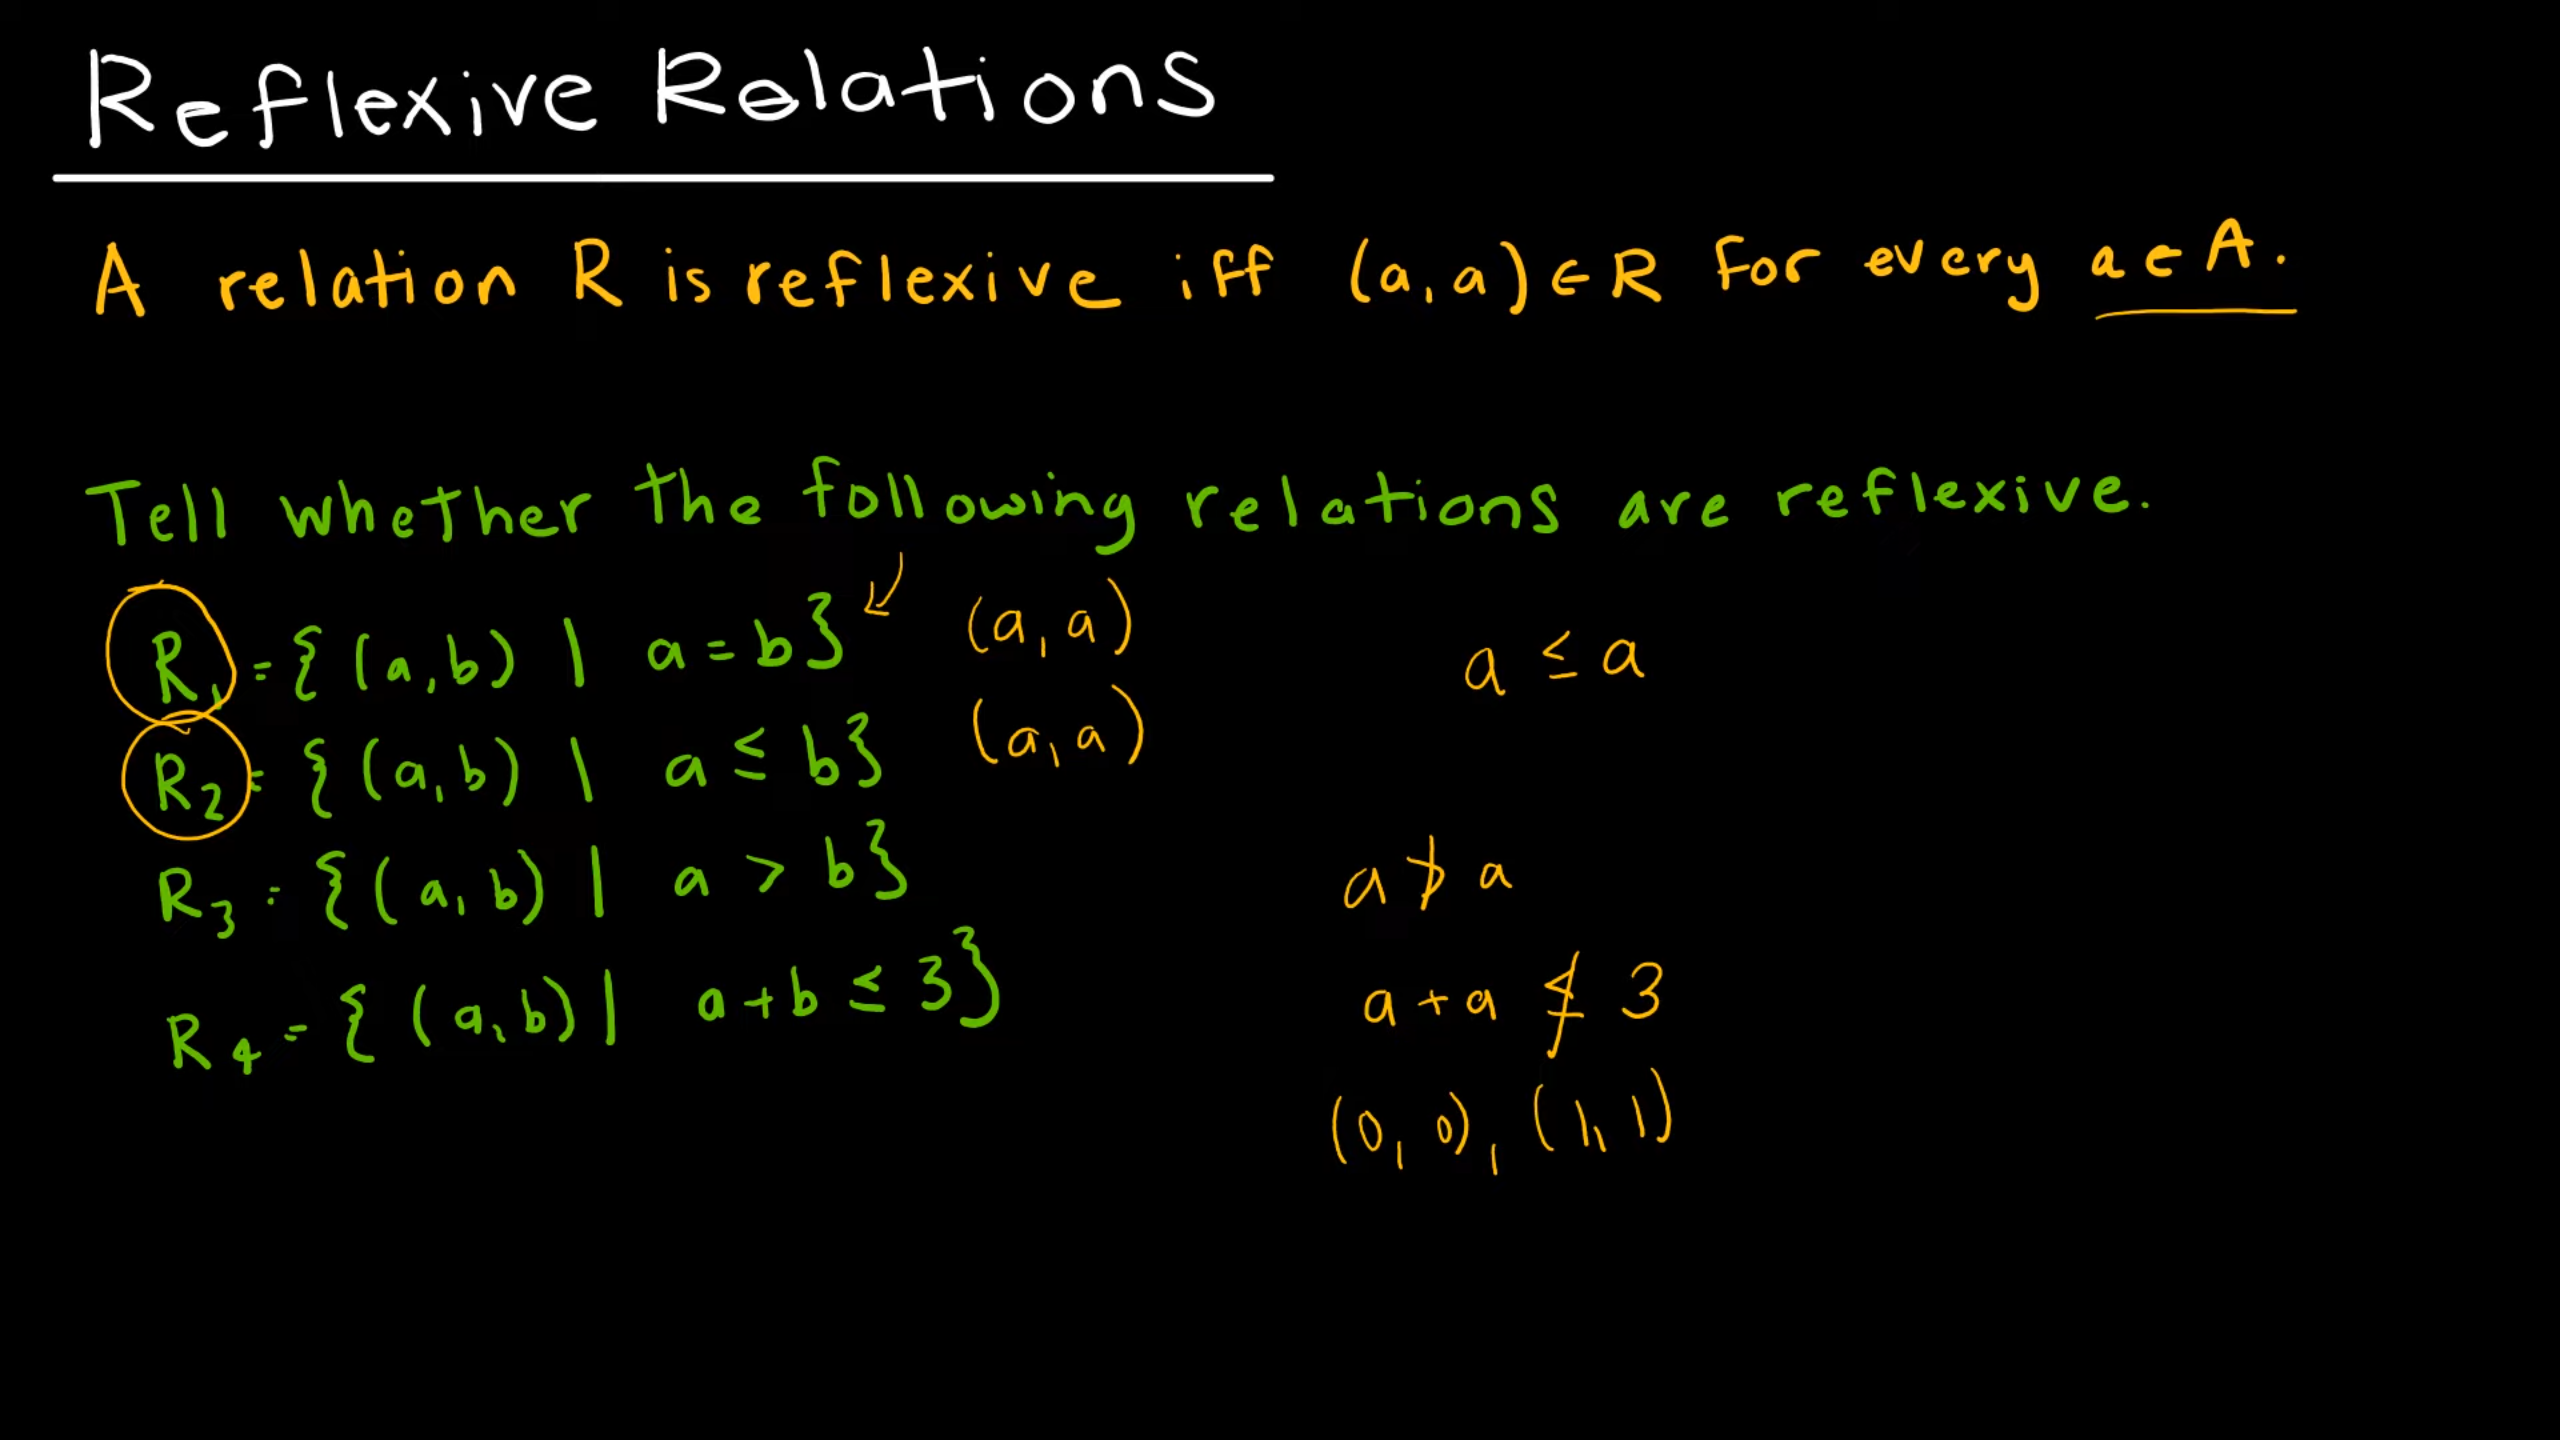 Reflexive Relations
A relation R is reflexive iff (a,a)∈R for every a∈A.
Tell whether the following relations are reflexive.
R₁={(a,b) | a=b} (a,a)
a≤a
R₂={(a,b) | a≤b} (a,a)
R₃={(a,b) | a>b} a≯a
R₄={(a,b) | a+b≤3} a+a≰3
(0,0), (1,1)